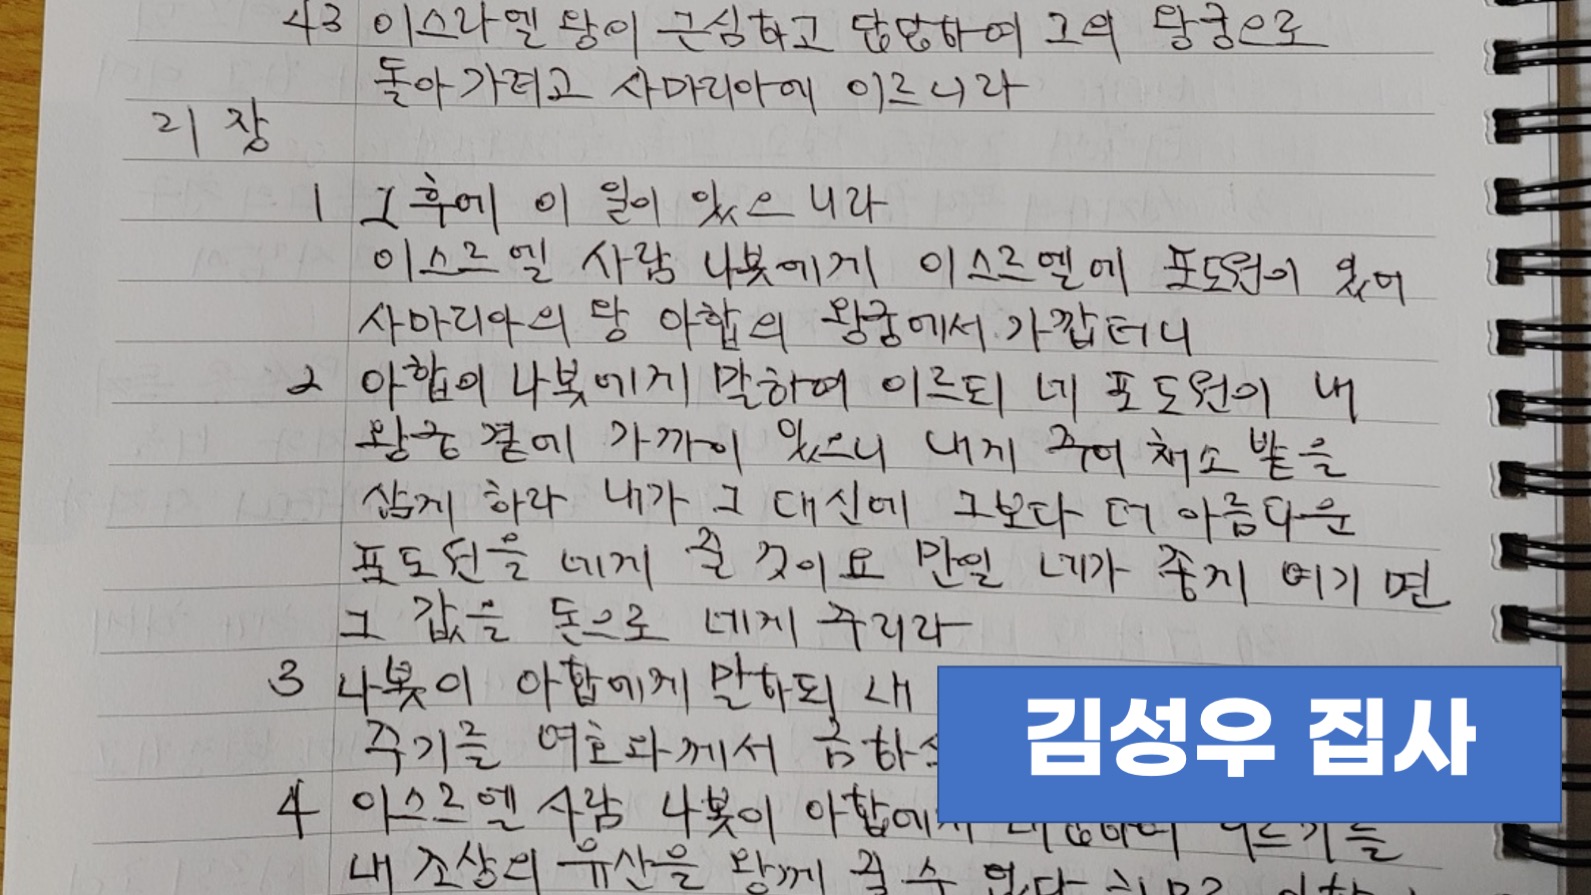 43 이스라엘 왕이 근심하고 답답하여 그의 왕궁으로
돌아가려고 사마리아에 이르니라
21 장
1 그후에 이 일이 있으니라
이스르엘 사람 나봇에게 이스르엘에 포도원이 있어
사마리아의 왕 아합의 왕궁에서 가깝더니
2 아합이 나봇에게 말하여 이르되 네 포도원이 내
왕궁 곁에 가까이 있으니 내게 주어 채소 밭을
삼게 하라 내가 그 대신에 그보다 더 아름다운
포도원을 네게 줄 것이요 만일 네가 좋게 여기면
그 값을 돈으로 네게 주리라
3 나봇이 아합에게 말하되 내
주기를 여호와께서 금하
김성우 집사
4 이스르엘 사람 나봇이 아합에게 대답하여 이르기를
내 조상의 유산을 왕께 줄 수 없다